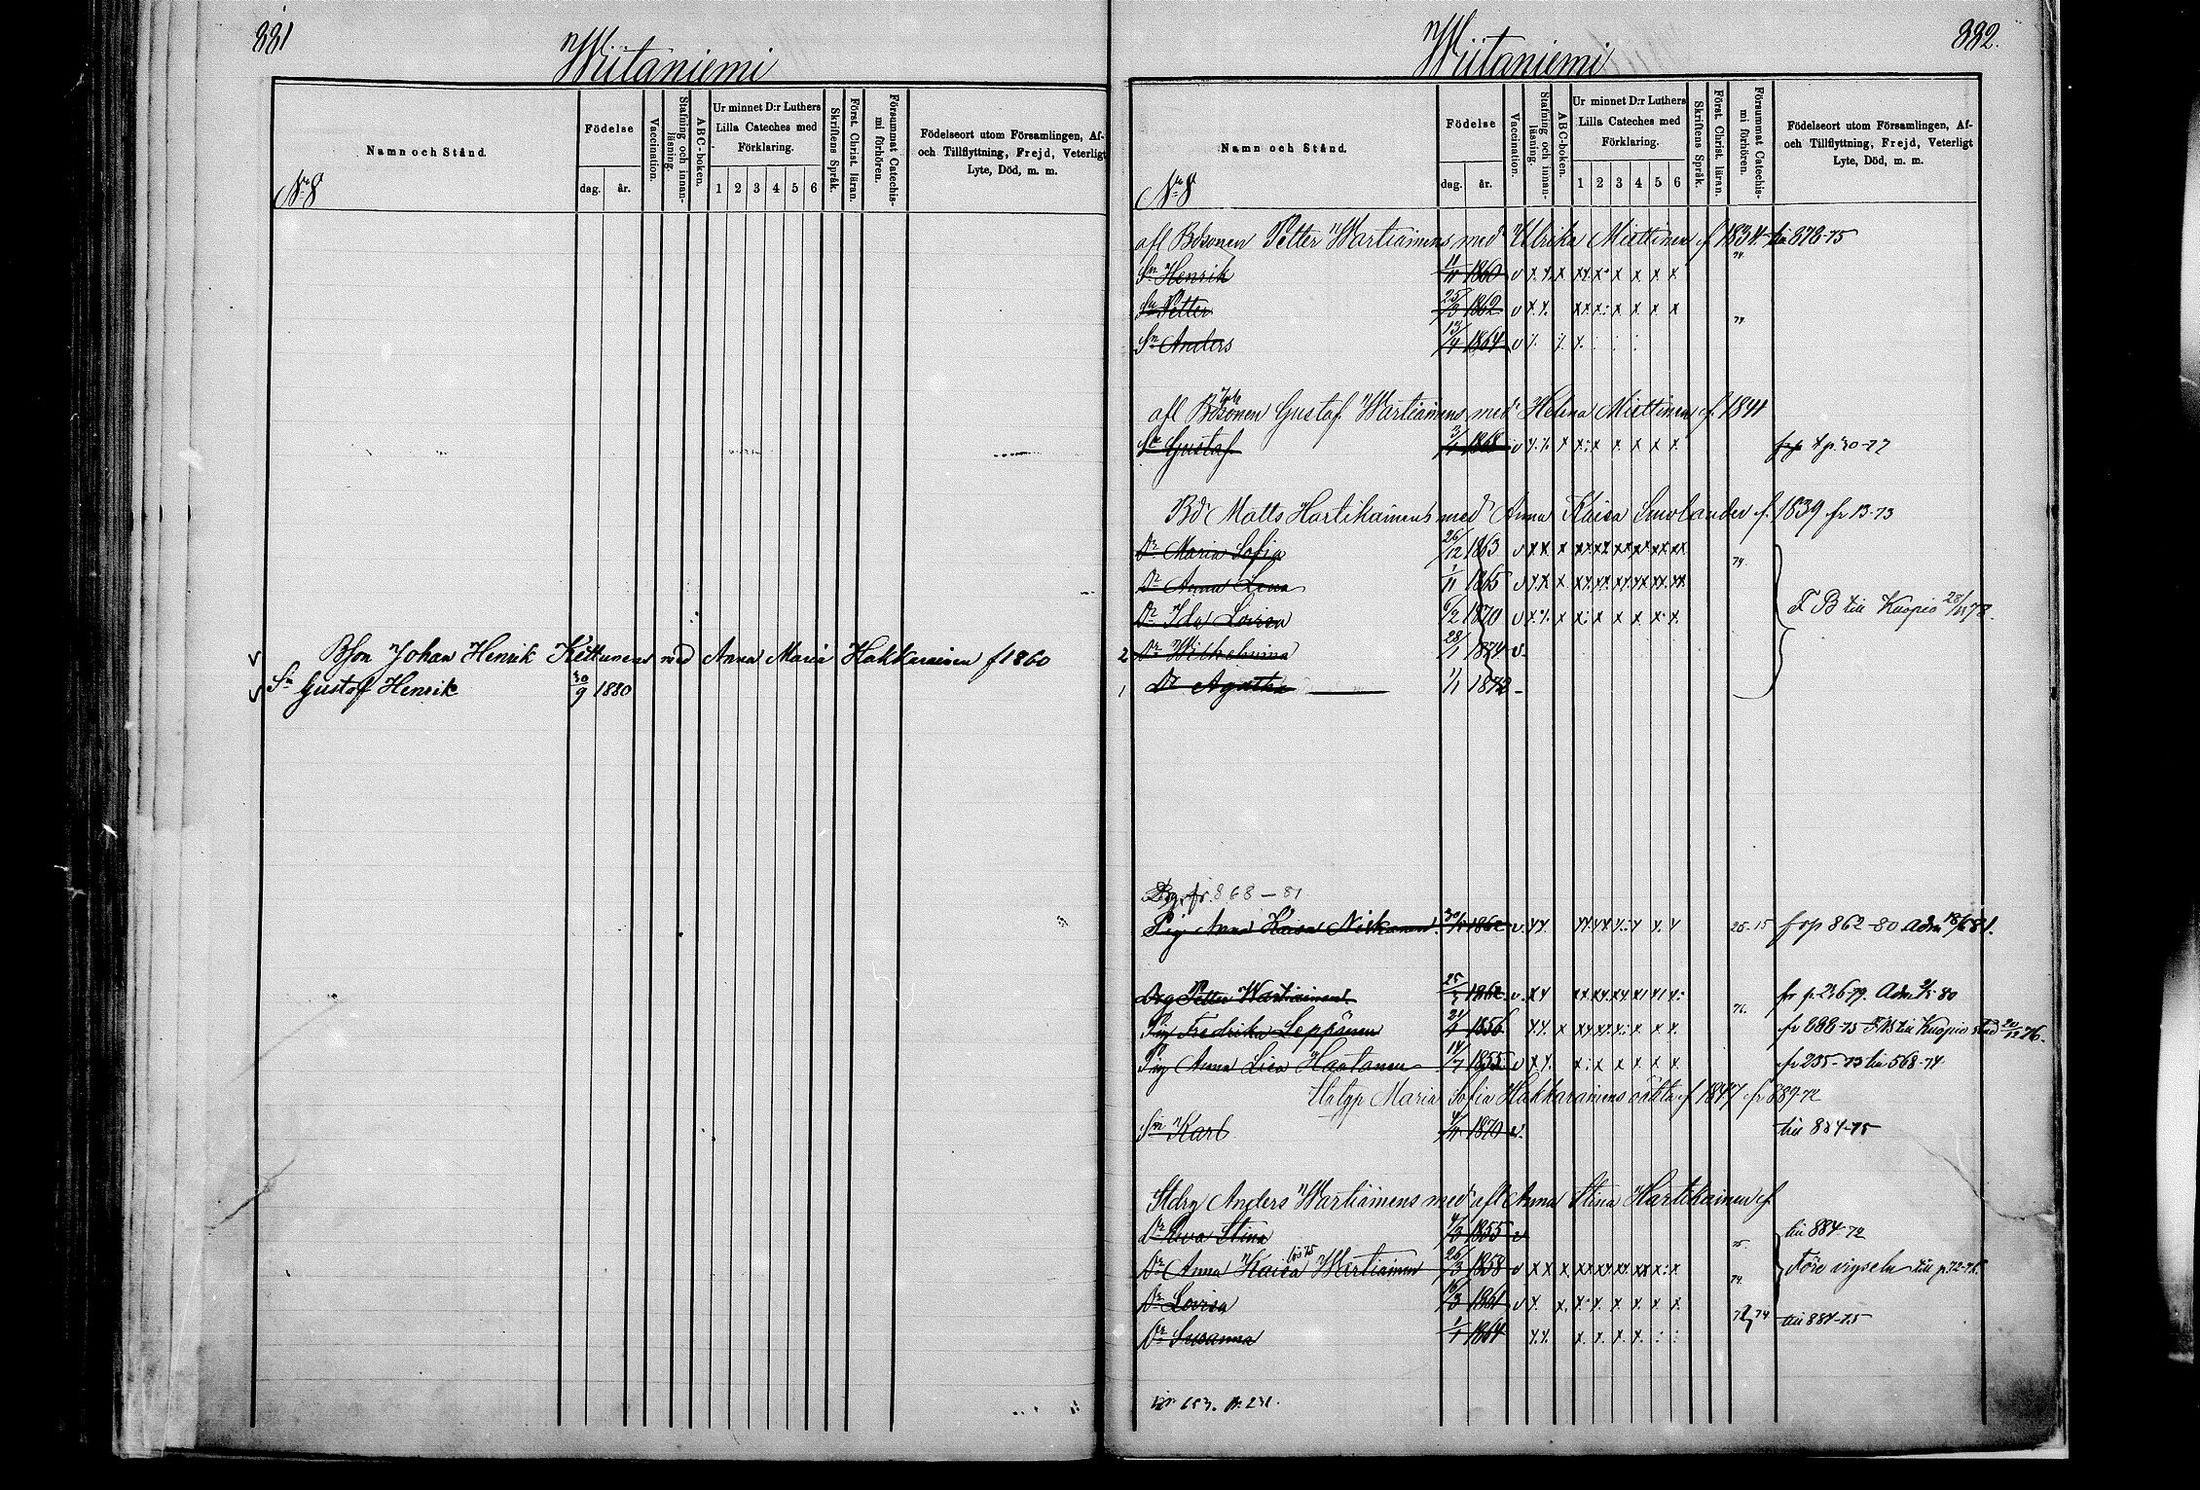 881
Wiitaniemi
Namn och Stånd.
Födelse
dag.
år.
Vaccination.
Stafning och innanläsning.
ABC-boken.
Ur minnet D:r Luthers
Lilla Cateches med
Förklaring.
1 2 3 4 5 6
Skriftens Språk.
Först. Christ. läran.
Försummat Catechismi förhören.
Födelseort utom Församlingen, Af-
och Tillflyttning, Frejd, Veterligt
Lyte, Död, m. m.
No 8
Bson Johan Henrik Kettunens med Anna Maria Hakkarainen f 1860
Sn Gustaf Henrik 30/9 1880
882.
Wiitaniemi
Namn och Stånd.
Födelse
dag.
år.
Vaccination.
Stafning och innanläsning.
ABC-boken.
Ur minnet D:r Luthers
Lilla Cateches med
Förklaring.
1 2 3 4 5 6
Skriftens Språk.
Först. Christ. läran.
Försummat Catechismi förhören.
Födelseort utom Församlingen, Af-
och Tillflyttning, Frejd, Veterligt
Lyte, Död, m. m.
No 8
afl Bdsonen Petter Wartiainens med Ulrika Miettinen f 1834 till 878-75
Sn Henrik 1860 v x x x x x x x 74
Sn Petter 25/3 1862 v x x x x x x x
Sn Anders 13/4 1864 v 74
afl Bdsonen Gustaf Wartiainens med Helena Miettinen f. 1841
Sn Gustaf 1868 v p. 30-77
Bd Matts Hartikainens med Anna Kaisa Smolander f. 1839 fr 13-73
Dr Maria Sofia 26/12 1863 v
Dr Anna Lena 1/11 1865 v 74
Dr Ida Lovisa 6/2 1870 v F B till Kuopio 28/11 78.
2 Dr Wilhelmina 28/1 1874 v
1 Dr Agatha 1/1 1872 -
Drg. fr. 868-81
Pig Anna Kaisa Niskanen 1862 v fr p 862-80 Adm 18/6 81.
Drg Petter Wartiainen 25/3 1862 v fr p. 236-79. Adm 80
Pig Fredrika Leppänen 1856 76. fr 888-75 F. B till Kuopio stad 20/12 76.
Pig Anna Lisa Haatanen 14/7 1855 v fr 235-73 till 568-74
Maria Sofia Hakkarainens oäkta f 1847 fr 889-72
Sn Karl 1870 v. till 884-75
Anders Wartiainens med afl Anna Stina Hartikainen f
Dr Eva Stina 1855 v till 884-72
Dr Anna Kaisa Wartiainen 26/3 1858 v 75. Före vigseln till p. 72-75.
Dr Lovisa 1861 v 74
Dr Susanna 1864 72, 74 till 884-75
653. 231.